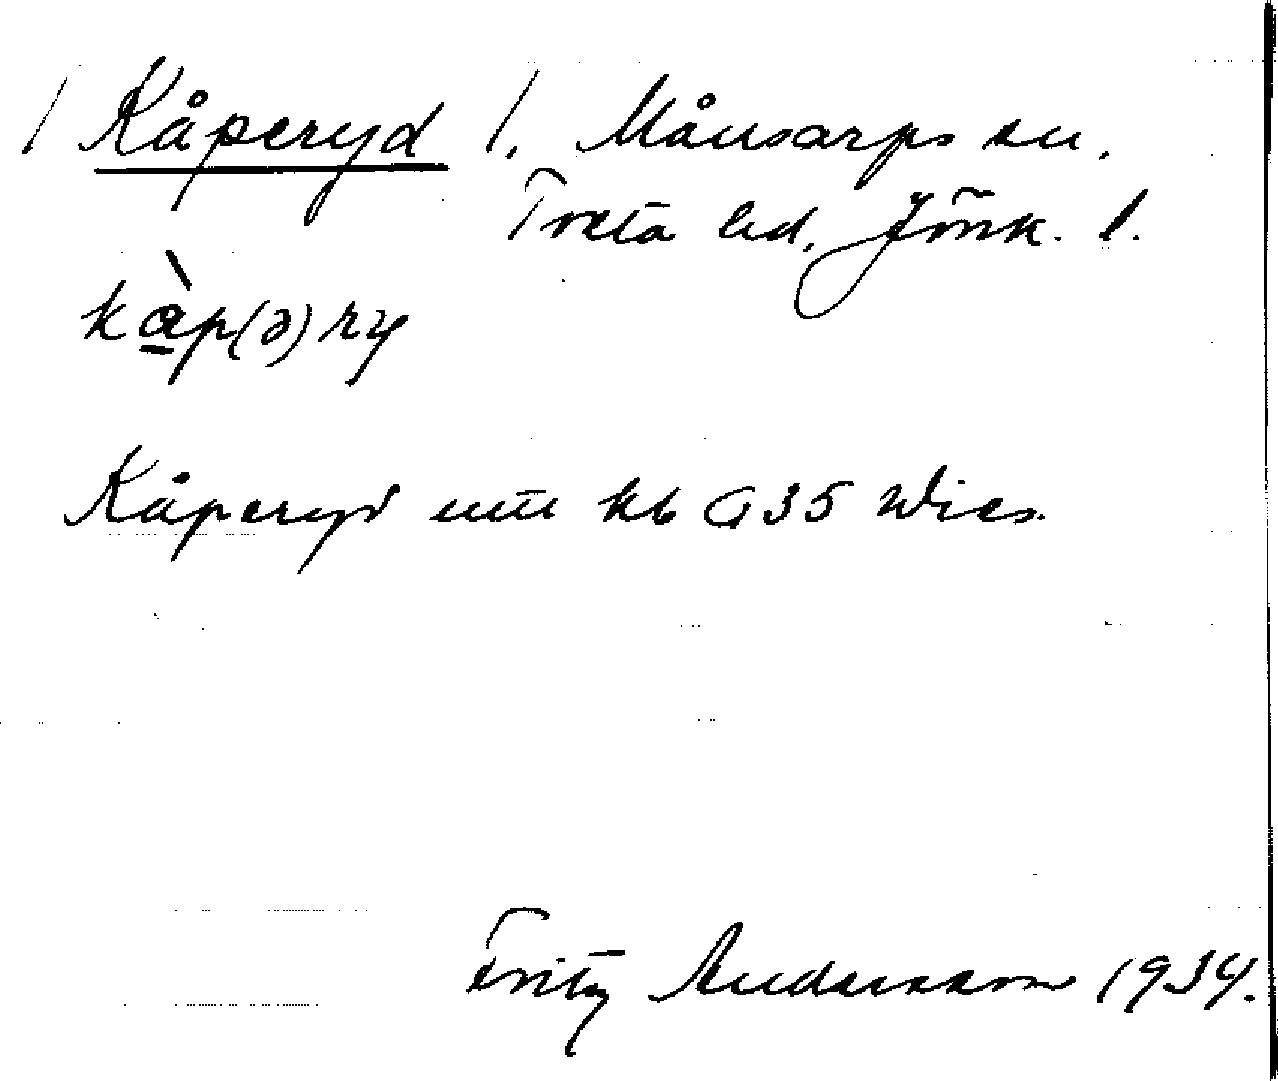 / Kåperyd /, Månsarps sn.
Tveta hd, Jönk. l.
kàp(ə)ry
Kåperyd utt kb G35 Wies.
Fritz Andersson 1934.